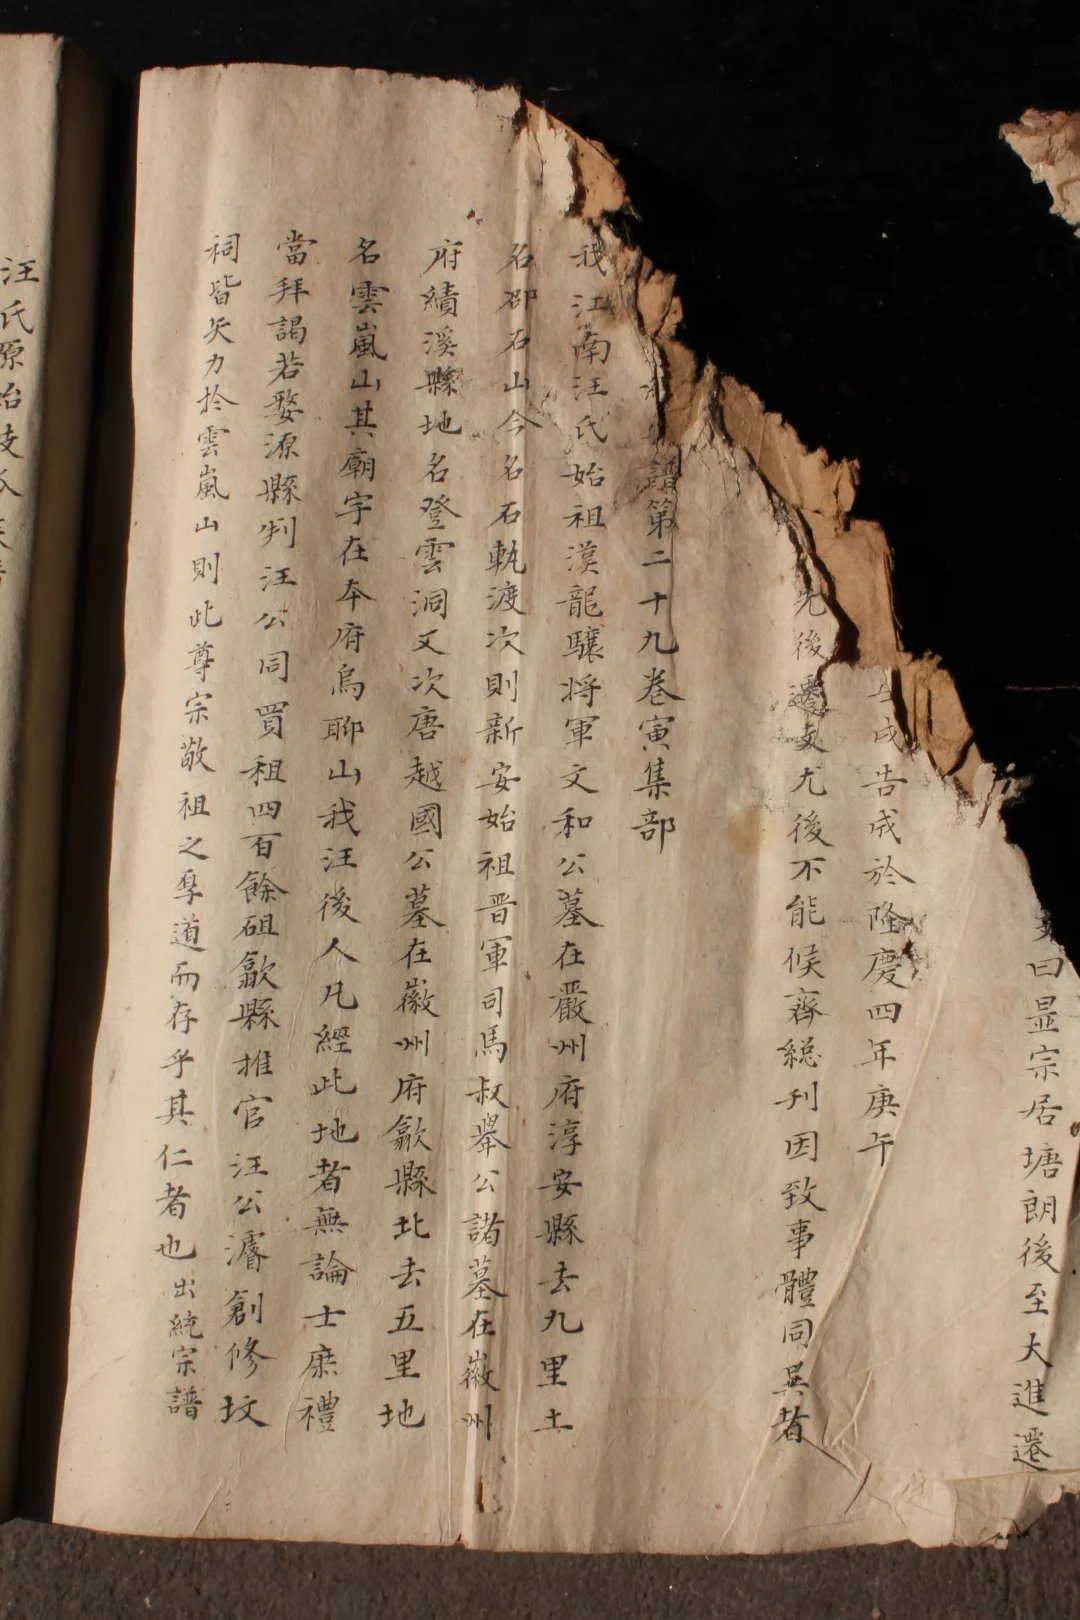 曰显宗居塘朗後至大進遷
戌告成於隆慶四年庚午
先後遷支尤後不能候齊総刊因致事體同異者
譜第二十九卷寅集部
我江南汪氏始祖漢龍驤将軍文和公墓在嚴州府淳安縣去九里土
名郘石山今名石軌渡次則新安始祖晋軍司馬叔舉公諸墓在徽州
府績溪縣地名登雲洞又次唐越國公墓在徽州府歙縣北去五里地
名雲嵐山其廟宇在夲府烏聊山我汪後人凡經此地者無論士庶禮
當拜謁若婺源縣判汪公同買租四百餘砠歙縣推官汪公濬創修坟
祠皆矢力扵雲嵐山則此尊宗敬祖之厚道而存乎其仁者也出統宗譜
汪氏原始支